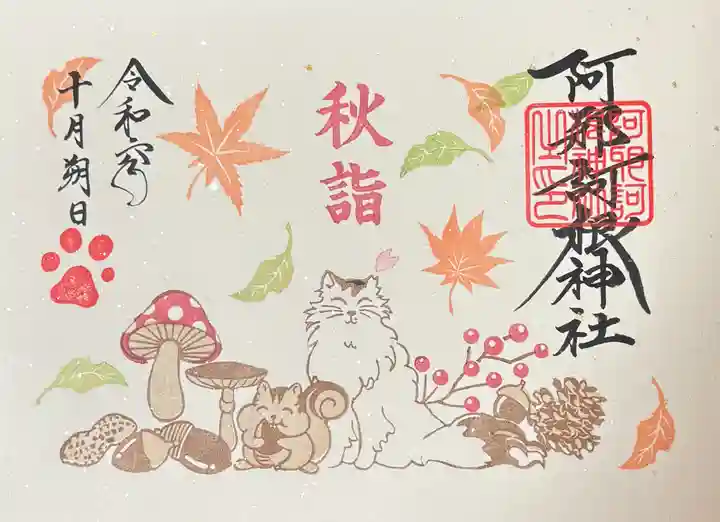 阿邪訶根神社
阿邪訶
根神社
之印
秋詣
令和六年
十月朔日